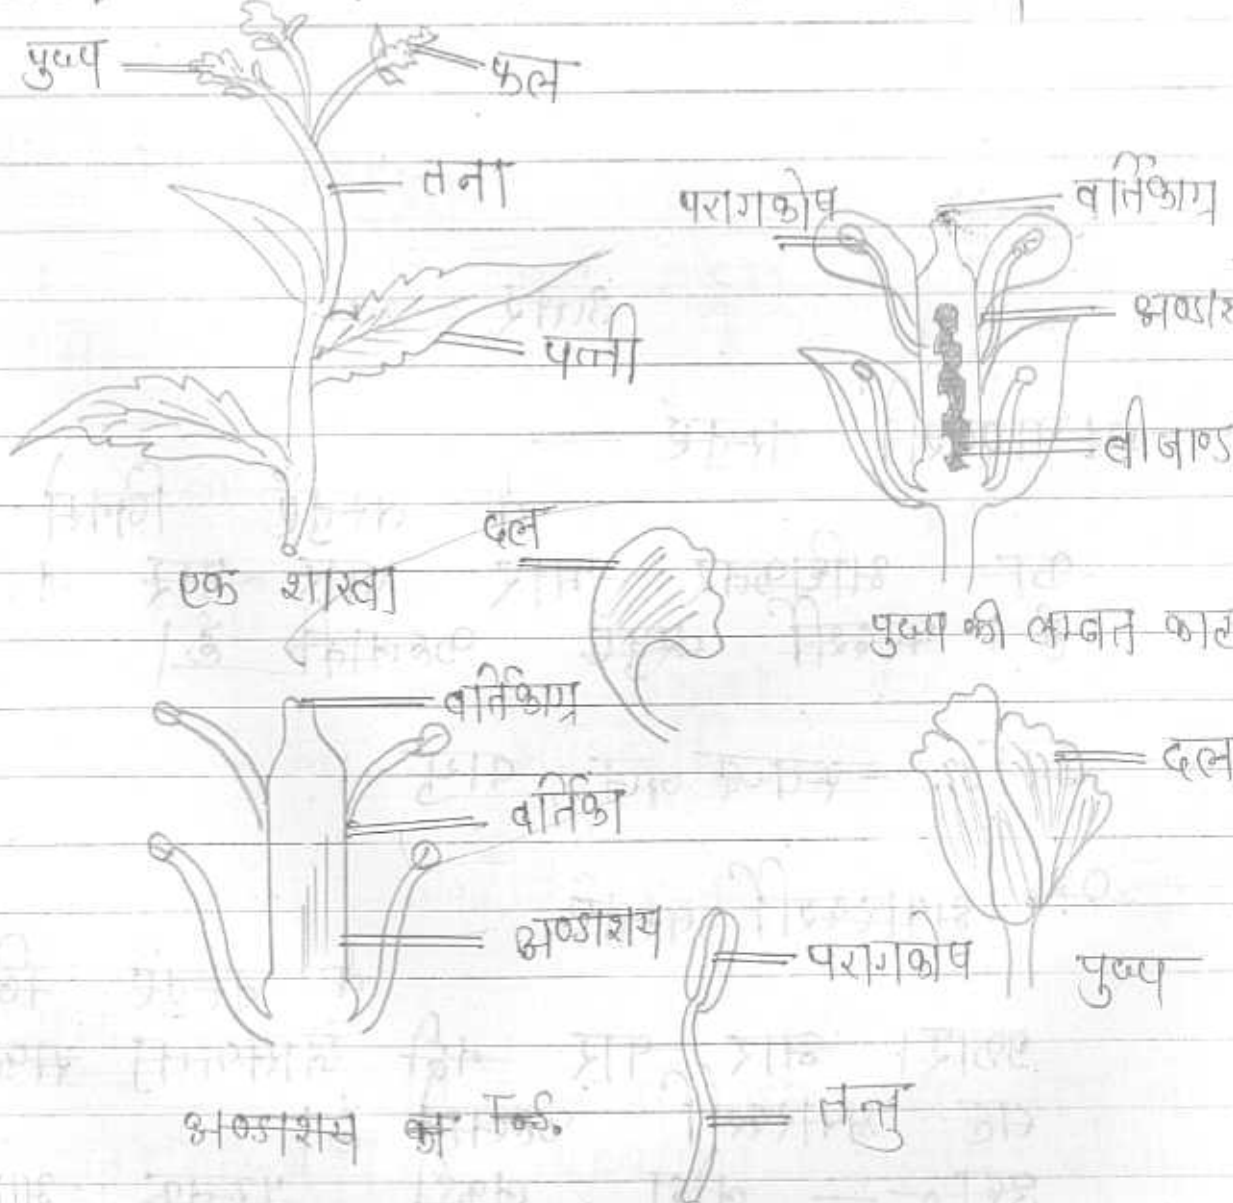 पुष्प
फल
तना
पत्ती
एक शाखा
परागकोष
वर्तिकाग्र
अण्डाश
बीजाण्ड
पुष्प की लम्बत काट
दल
वर्तिकाग्र
वर्तिका
अण्डाशय
अण्डाशय का T.S.
दल
पुष्प
परागकोष
तन्तु